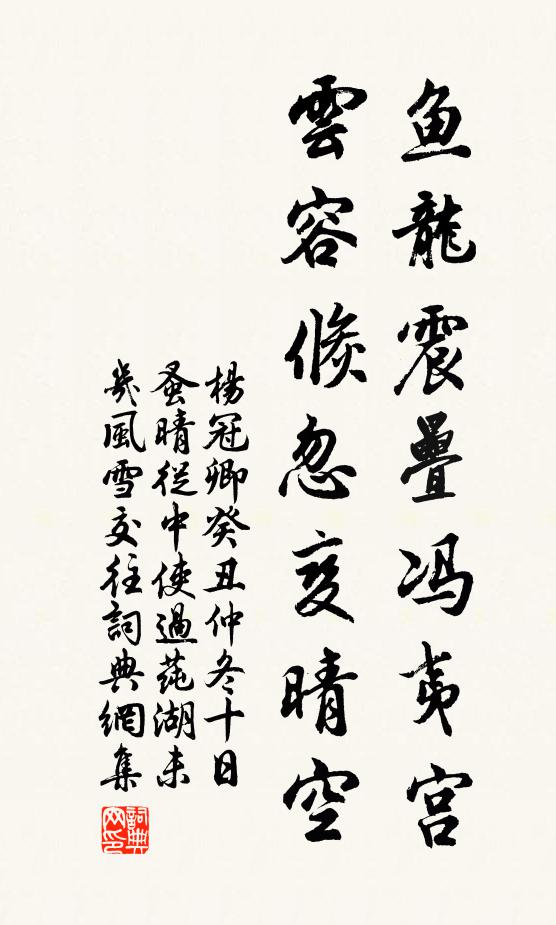 鱼龍震疊冯夷宫
雲容倐忽变晴空
楊冠卿癸丑仲冬十日
蚤晴從中使過蒓湖未
幾風雪交往詞典網集
詞典网印